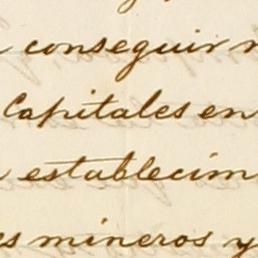 conseguir
Capitales en
establecim
es mineros y